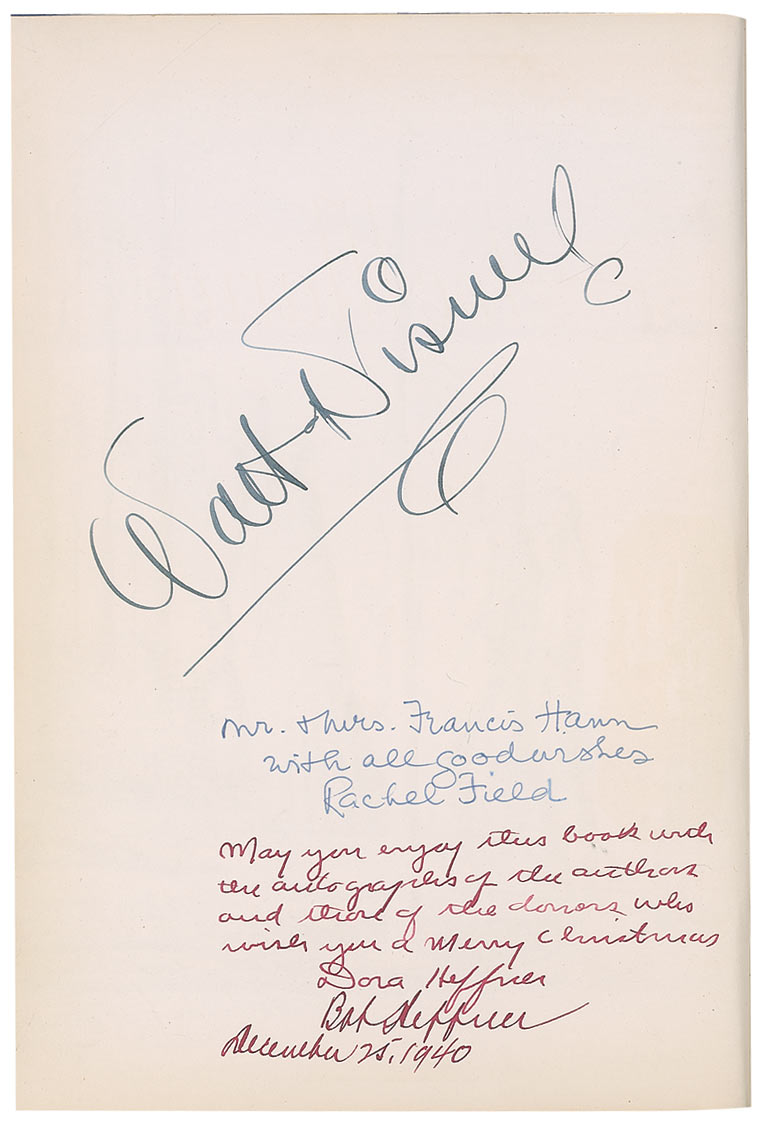 Walt Disney
Mr. & Mrs. Francis Hann
with all good wishes
Rachel Field
May you enjoy this book with
the autographs of the authors
and those of the donors who
wish you a Merry Christmas
Dora Heffner
Bob Heffner
December 25, 1940